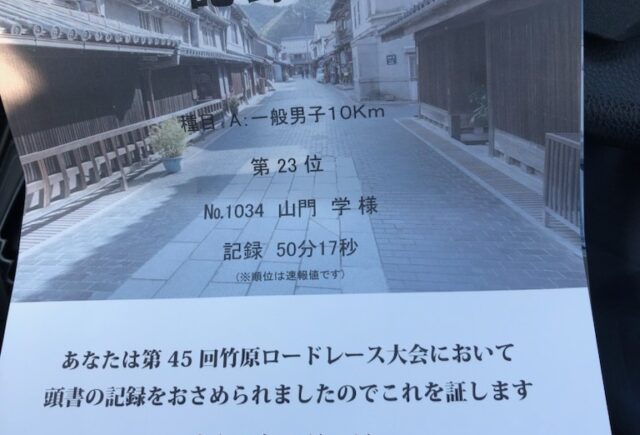 種目 A:一般男子10Km
第23位
No.1034 山門 学 様
記録 50分17秒
(※順位は速報値です)
あなたは第 45 回竹原ロードレース大会において
頭書の記録をおさめられましたのでこれを証します